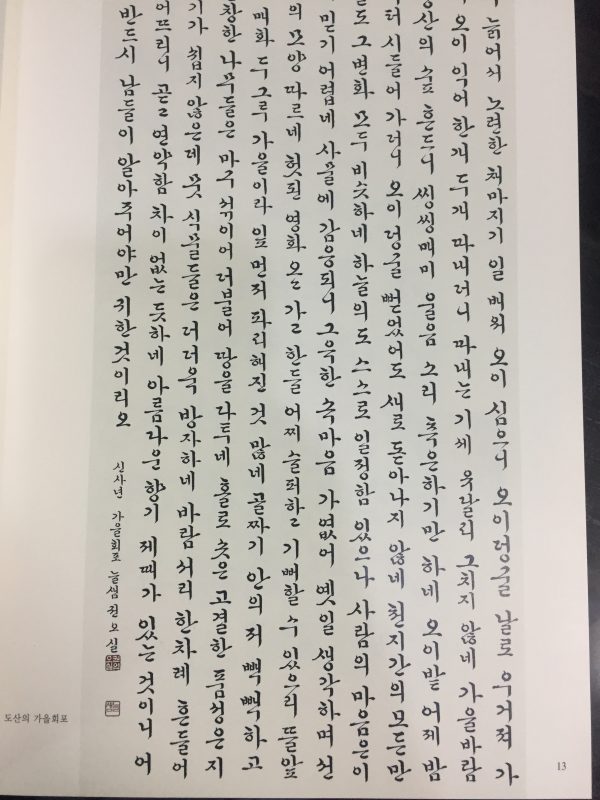 늙어서 노련한 채마지기 일 배워 오이 심으니 오이덩굴 날로 우거져 가
오이 익어 한개 두개 따내더니 따내는 기세 유달리 그치지 않네 가을바람
산의 숲 흔드니 씽씽매미 울음 소리 측은하기만 하네 오이밭 어제 밤
터 시들어 가더니 오이 덩굴 뻗었어도 새로 돋아나지 않네 천지간의 모든만
도 그변화 모두 비슷하네 하늘의 도 스스로 일정함 있으나 사람의 마음은이
믿기 어렵네 사물에 감응되니 그윽한 속마음 가엾어 옛일 생각하며 선
의 모양 따르네 헛된 영화 한들 어찌 슬퍼하고 기뻐할 수 있으리 뜰앞
매화 두 그루 가을이라 잎 먼저 파리해진 것 많네 골짜기 안의 저 빽빽하고
창한 나무들은 마구 섞이어 더불어 땅을 다투네 홀로 솟은 고결한 품성은 지
기가 쉽지 않은데 뭇 식물들은 더더욱 방자하네 바람 서리 한차례 흔들어
어뜨리니 곧고 연약함 차이 없는 듯하네 아름다운 향기 제때가 있는 것이니 어
반드시 남들이 알아주어야만 귀한것이리오
신사년 가을회포 늘샘 권오실
도산의 가을회포
13